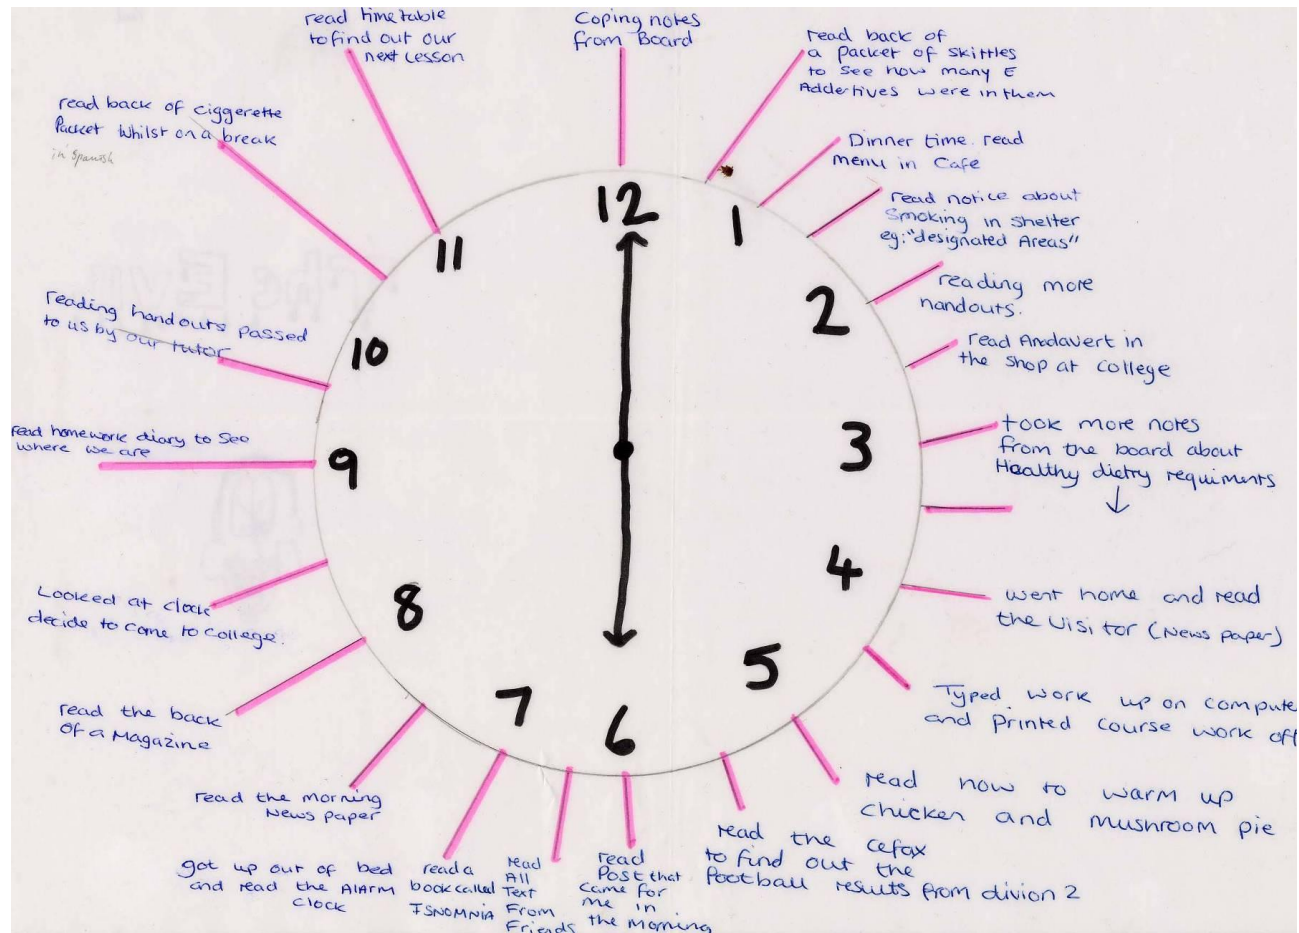 Coping notes
from Board
read back of
a packet of skittles
to see how many E
Addertives were in them
Dinner time. read
menu in Cafe
read notice about
Smoking in shelter
eg: "designated Areas"
reading more
handouts.
read Anadavert in
the shop at college
took more notes
from the board about
Healthy dietry requiments
↓
went home and read
the Visitor (News paper)
Typed work up on compute
and printed course work off
read how to warm up
chicken and mushroom pie
read the cefax
to find out the
football results from divion 2
read
Post that
came for
me in
the morning
read
All
Text
From
Friends
read a
book called
ISNOMNIA
got up out of bed
and read the AlARM
clock
read the morning
News paper
read the back
of a Magazine
Looked at clock
decide to come to college.
read homework diary to see
where we are
reading handouts passed
to us by our tutor
read back of ciggerette
Packet whilst on a break
in Spanish
read timetable
to find out our
next Lesson
12
1
2
3
4
5
6
7
8
9
10
11